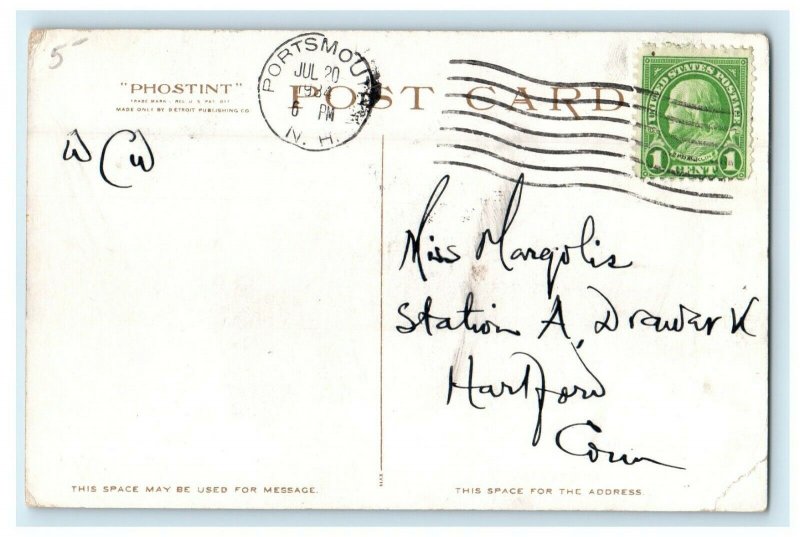 5-
"PHOSTINT"
TRADE MARK. REG. U.S. PAT. OFF.
MADE ONLY BY DETROIT PUBLISHING CO.
PORTSMOUTH
JUL 20
6 PM
N. H.
POST CARD
UNITED STATES POSTAGE
FRANKLIN
1 CENT 1
W C W
Miss Margolis
Station A, Drawer K
Hartford
Conn
THIS SPACE MAY BE USED FOR MESSAGE.
THIS SPACE FOR THE ADDRESS.